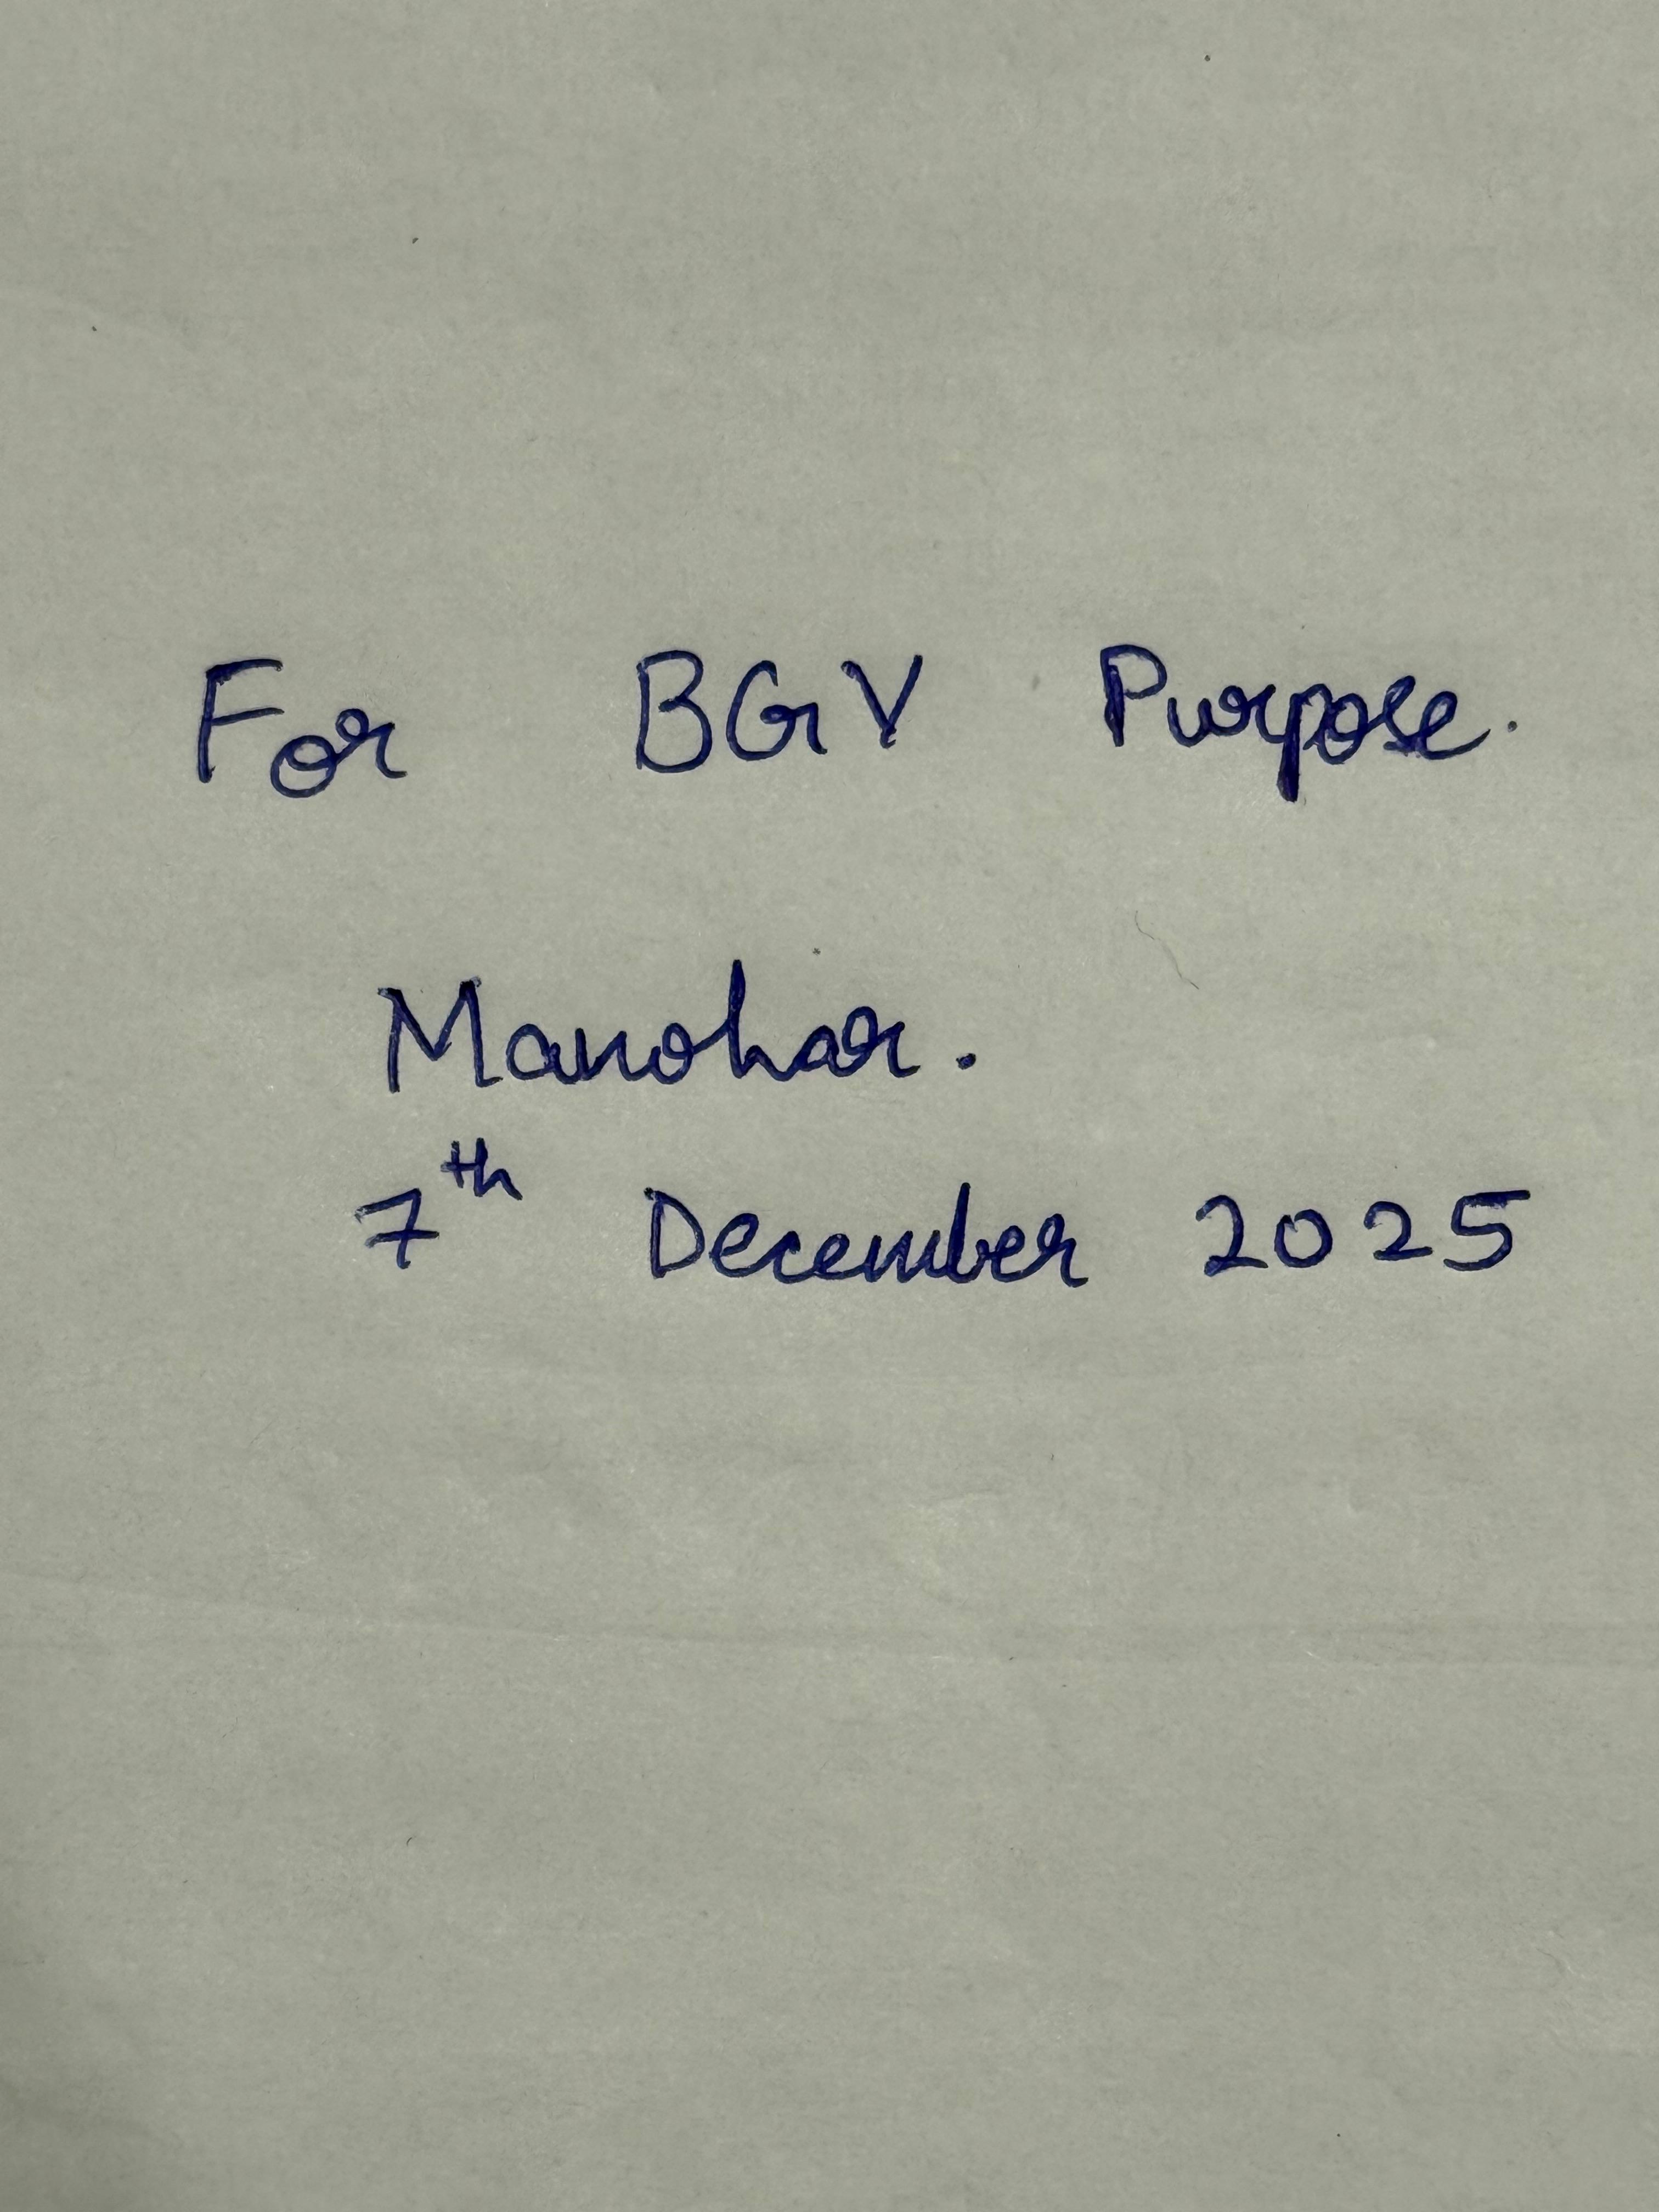 For BGV Purpose.
Manohar.
7th December 2025